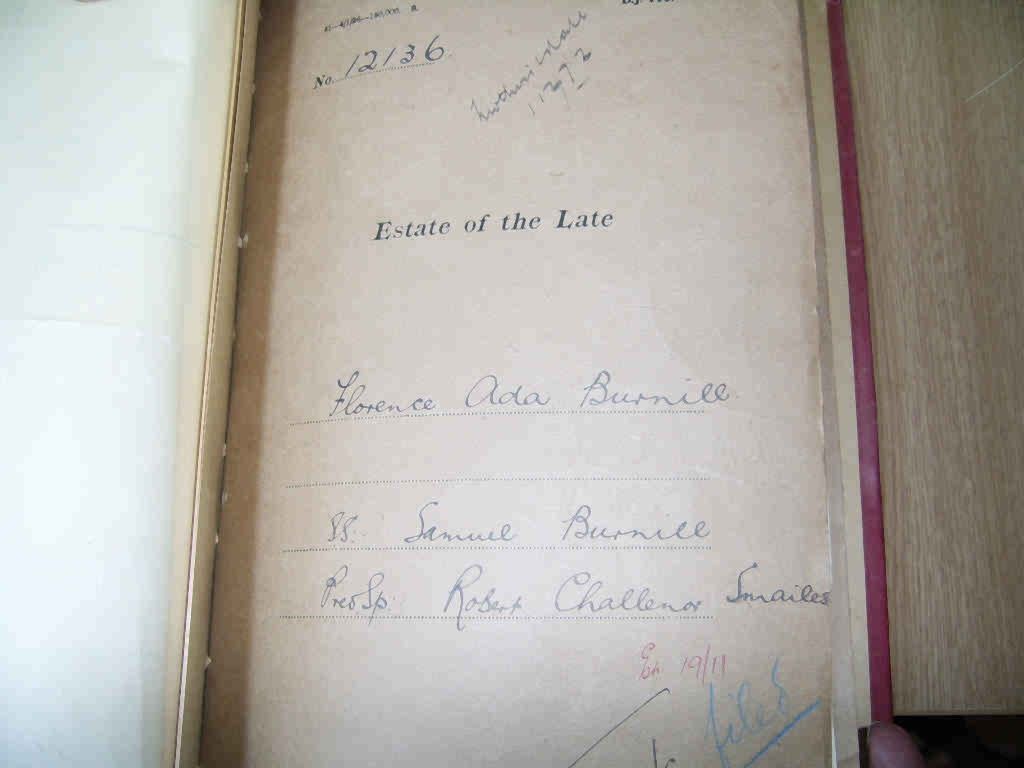 No. 12136
Estate of the Late
Florence Ada Burnill
SS. Samuel Burnill
Pred Sp. Robert Challenor Smailes
19/11
filed